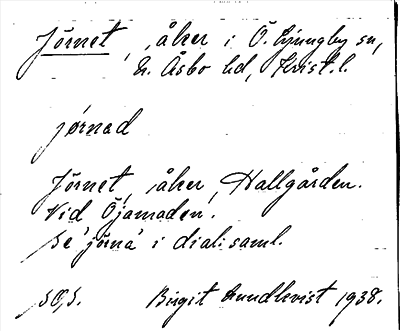 Jörnet, åker i Ö. Ljungby sn,
N. Åsbo hd, Krist. l.
jørnad
Jörnet, åker, Hallgården.
Vid Öjamaden.
Se 'jörna' i dial. saml.
Birgit Lundkvist 1938.